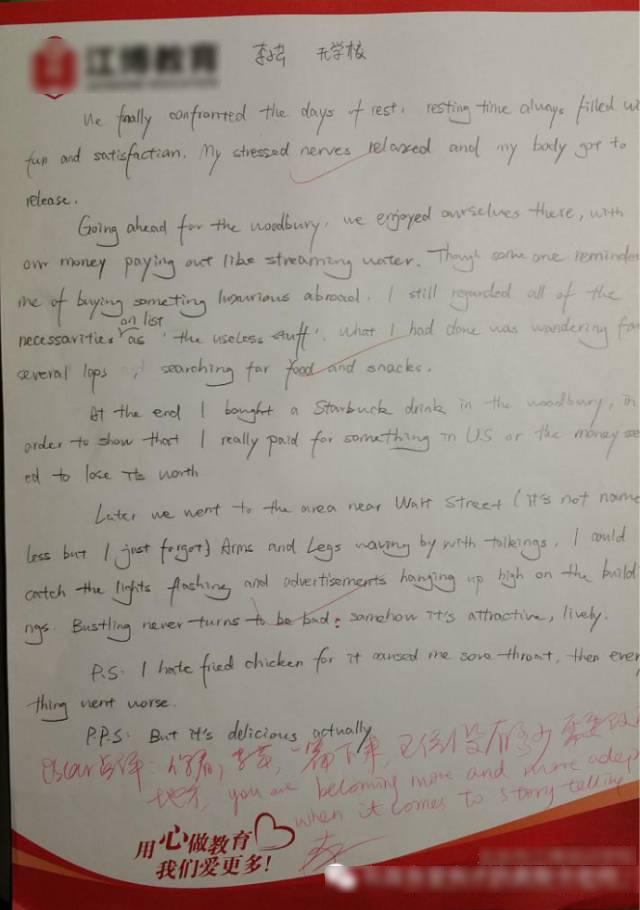 江博教育 李 无学校
We finally confronted the days of rest, resting time always filled wi
fun and satisfaction. My stressed nerves relaxed and my body got to
release.
Going ahead for the woodbury, we enjoyed ourselves there, with
our money paying out like streaming water. Though some one reminded
me of buying someting luxurious abroad, I still regarded all of the
on list
necessarities as 'the useless stuff'. What I had done was wandering for
several lops , searching for food and snacks.
At the end I bought a Starbuck drink in the woodbury, in
order to show that I really paid for something in US or the money se
ed to lose its worth
Later we went to the area near Wart Street (it's not name
less but I just forgot) Arms and Legs waving by with talkings, I could
catch the lights flashing and advertisements hanging up high on the build
ngs. Bustling never turns to be bad: somehow it's attractive, lively.
P.S. I hate fried chicken for it caused me sore throat, then ever
thing went worse.
P.P.S. But it's delicious actually
Oscar点评: 你看, 一篇下来, 已经没有多少需要改
地方, you are becoming more and more adep
when it comes to story telling
用心做教育
我们爱更多!